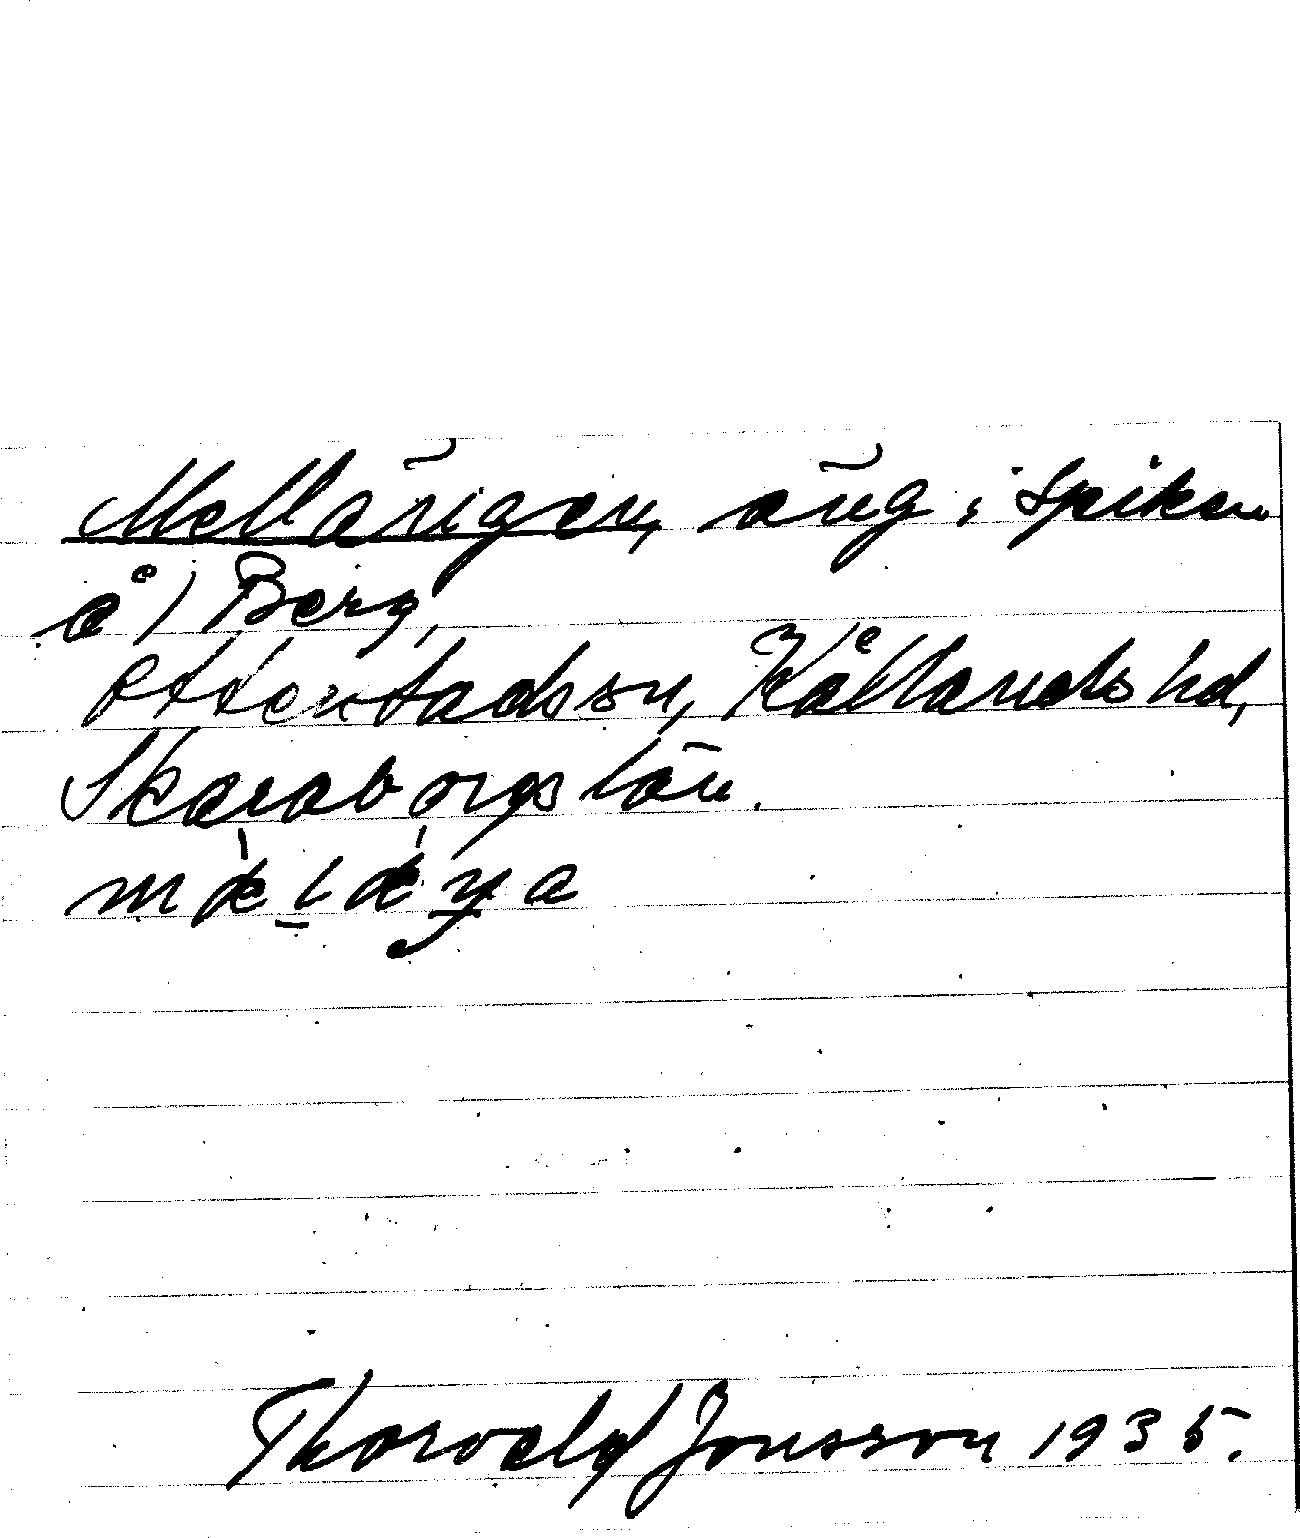 Mellängen, äng i Spiken
å) Berg,
Ottenstads sn, Kållands hd,
Skaraborgs län.
Thorvald Jonsson 1935.